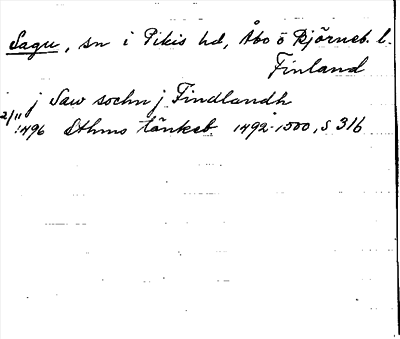 Sagu, sn i Pikis hd, Åbo ö Björneb. l.
Finland
j Saw sochn j Findlandh
2/11 1496 Sthms tänkeb. 1492-1500, s 316